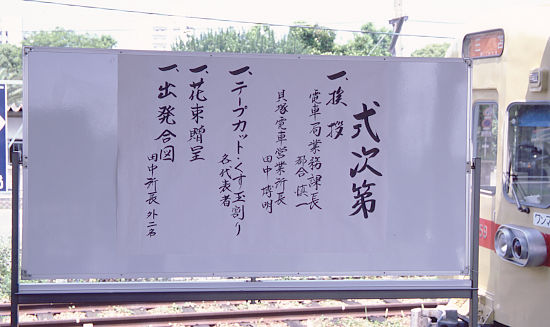 式次第
一、挨拶
電車局業務課長
都合 慎一
貝塚電車営業所長
田中 博明
一、テープカット・くす玉割り
各代表者
一、花束贈呈
一、出発合図
田中所長 外二名
ワンマ
59